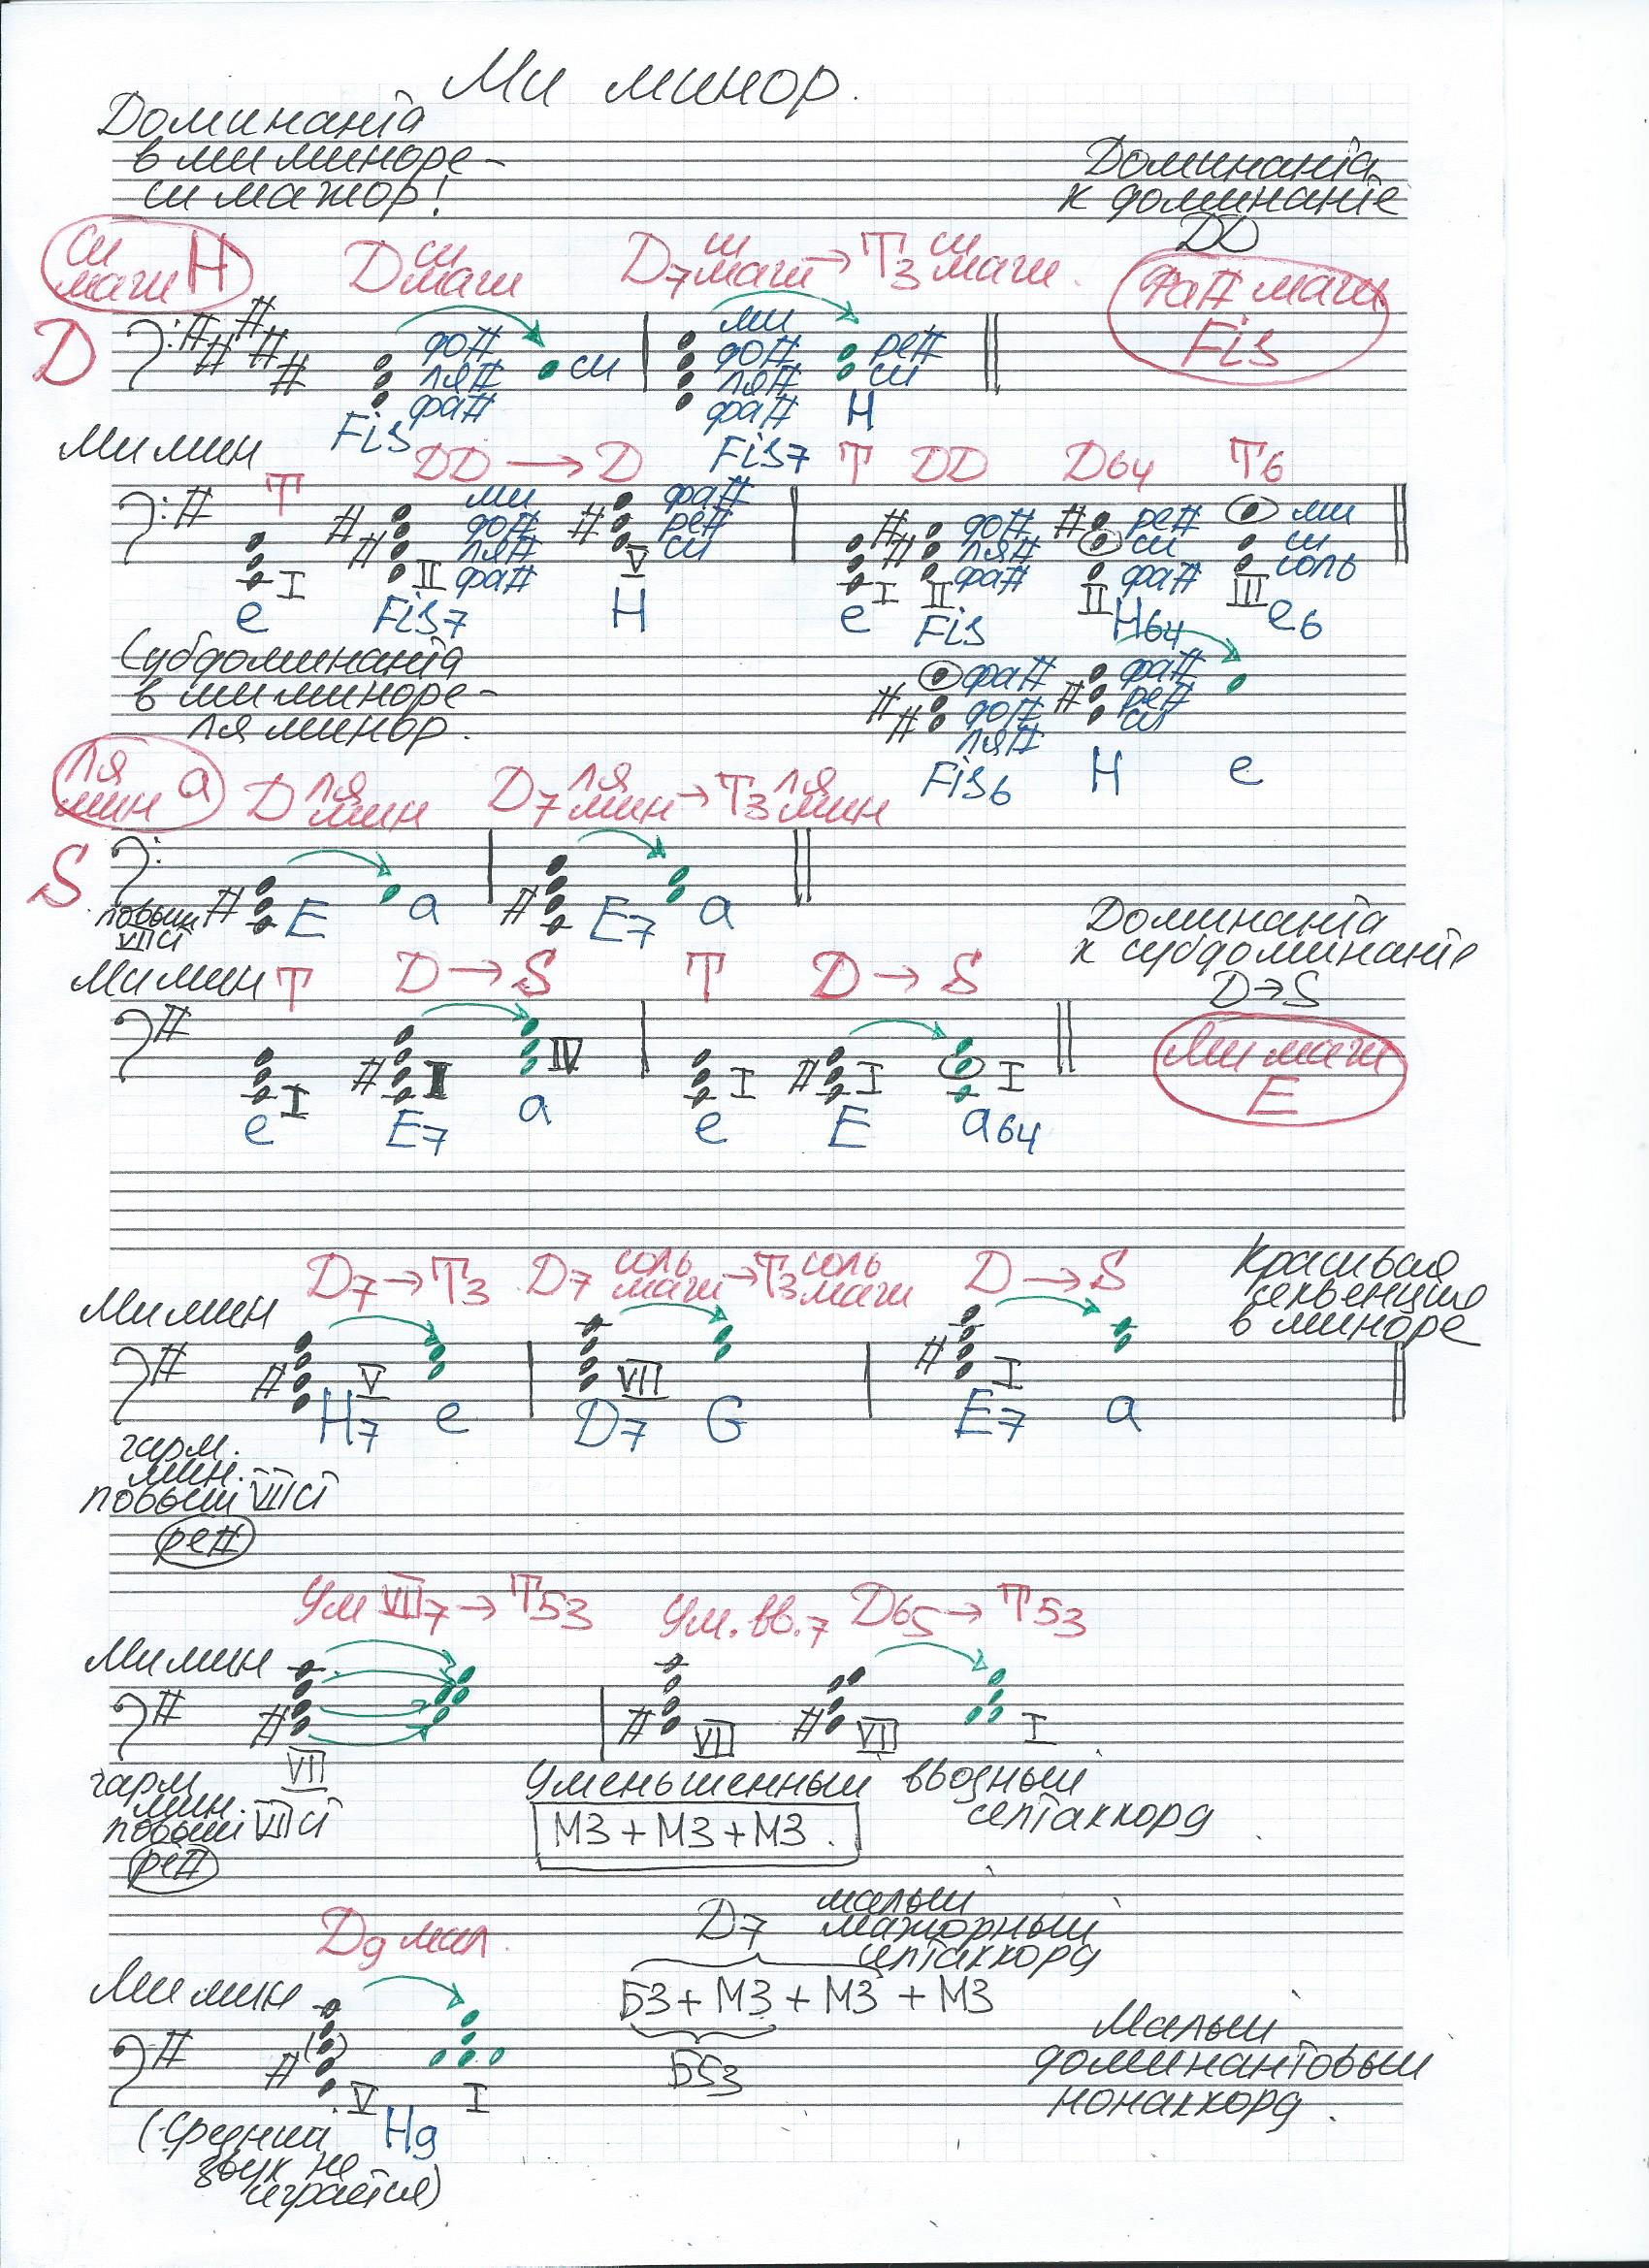 Ми минор.
Доминанта
в ми миноре –
си мажор!
Доминанта
к доминанте
DD
си
маж H
D си
маж
D7 си
маж → T3 си
маж.
фа# маж
Fis
D
до#
ля#
фа#
си
ми
до#
ля#
фа#
ре#
си
Fis
Fis7
H
Ми мин
T
DD → D
T
DD
D64
T6
ми
до#
ля#
фа#
фа#
ре#
си
до#
ля#
фа#
ре#
си
фа#
ми
си
соль
I
II
V
I
II
II
III
e
Fis7
H
e
Fis
H64
e6
Субдоминанта
в ми миноре –
ля минор.
фа#
до#
ля#
фа#
ре#
си
Fis6
H
e
ля
мин a
D ля
мин
D7 ля
мин → T3 ля
мин
S
E
a
E7
a
повыш
VII ст
Доминанта
к субдоминанте
D → S
Ми маж
E
Ми мин
T
D → S
T
D → S
I
IV
I
I
I
e
E7
a
e
E
a64
Красивая
секвенция
в миноре
Ми мин
D7 → T3
D7 соль
маж → T3 соль
маж
D → S
V
VII
I
H7
e
D7
G
E7
a
гарм.
мин.
повыш VII ст
ре#
Ми мин
Ум VII7 → T53
Ум. вв.7
D65 → T53
VII
VII
VII
I
гарм
мин.
повыш VII ст
ре#
Уменьшенный вводный
септаккорд
М3 + М3 + М3.
D9 мал.
D7 малый
мажорный
септаккорд
Б3 + М3 + М3 + М3
Б53
Ми мин
V
I
H9
(Средний
звук не
играется)
Малый
доминантовый
нонаккорд.